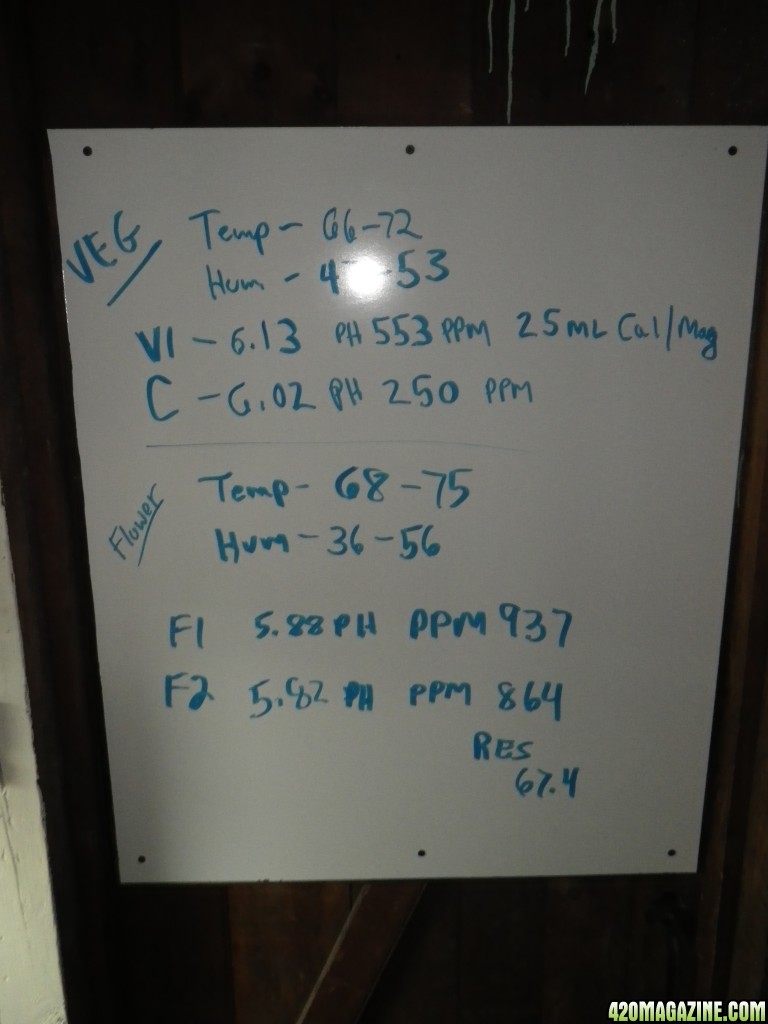 VEG
Temp - 66-72
Hum - 4 -53
V1 - 6.13 PH 553 PPM 25mL Cal/Mag
C - 6.02 PH 250 PPM
Flower
Temp - 68-75
Hum - 36-56
F1 5.88 PH PPM 937
F2 5.82 PH PPM 864
RES
67.4
420MAGAZINE.COM